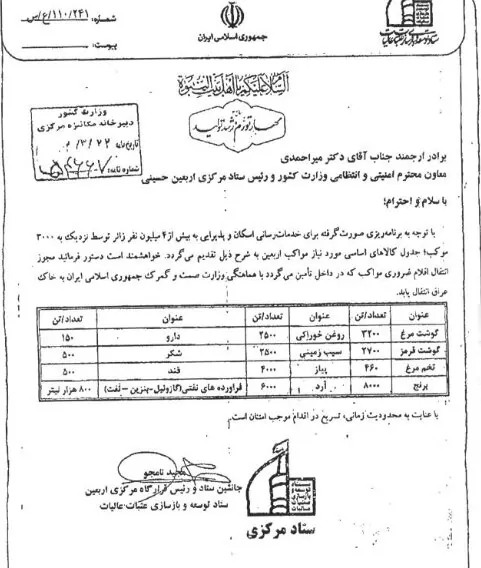 شماره: ۱۱۰/۲۴۱/ع/س
پیوست:
جمهوری اسلامی ایران
السلام علیکم یا اهل بیت النبوه
مهار تورم، رشد تولید
وزارت کشور
دبیرخانه مکانیزه مرکزی
تاریخ نامه
شماره نامه:
برادر ارجمند جناب آقای دکتر میراحمدی
معاون محترم امنیتی و انتظامی وزارت کشور و رئیس ستاد مرکزی اربعین حسینی
با سلام و احترام؛
با توجه به برنامه‌ریزی صورت گرفته برای خدمات‌رسانی اسکان و پذیرایی به بیش از ۴ میلیون نفر زائر توسط نزدیک به ۳۰۰۰
موکب؛ جدول کالاهای اساسی مورد نیاز مواکب اربعین به شرح ذیل تقدیم می‌گردد. خواهشمند است دستور فرمائید مجوز
انتقال اقلام ضروری مواکب که در داخل تأمین می‌گردد با هماهنگی وزارت صمت و گمرک جمهوری اسلامی ایران به خاک
عراق انتقال یابد.
عنوان تعداد/تن عنوان تعداد/تن عنوان تعداد/تن
گوشت مرغ ۳۲۰۰ روغن خوراکی ۲۵۰۰ دارو ۱۵۰
گوشت قرمز ۲۷۰۰ سیب زمینی ۲۵۰۰ شکر ۵۰۰
تخم مرغ ۴۶۰ پیاز ۴۰۰۰ قند ۵۰۰
برنج ۸۰۰۰ آرد ۶۰۰۰ فراورده های نفتی(گازوئیل-بنزین-نفت) ۸۰۰ هزار لیتر
با عنایت به محدودیت زمانی، تسریع در اقدام موجب امتنان است.
مجید نامجو
جانشین ستاد و رئیس قرارگاه مرکزی اربعین
ستاد توسعه و بازسازی عتبات عالیات
ستاد
توسعه و
بازسازی
عتبات
عالیات
ستاد مرکزی